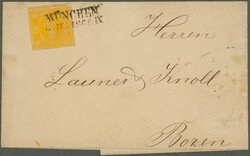 MÜNCHEN
Herren
Launer & Knoll
Bozen